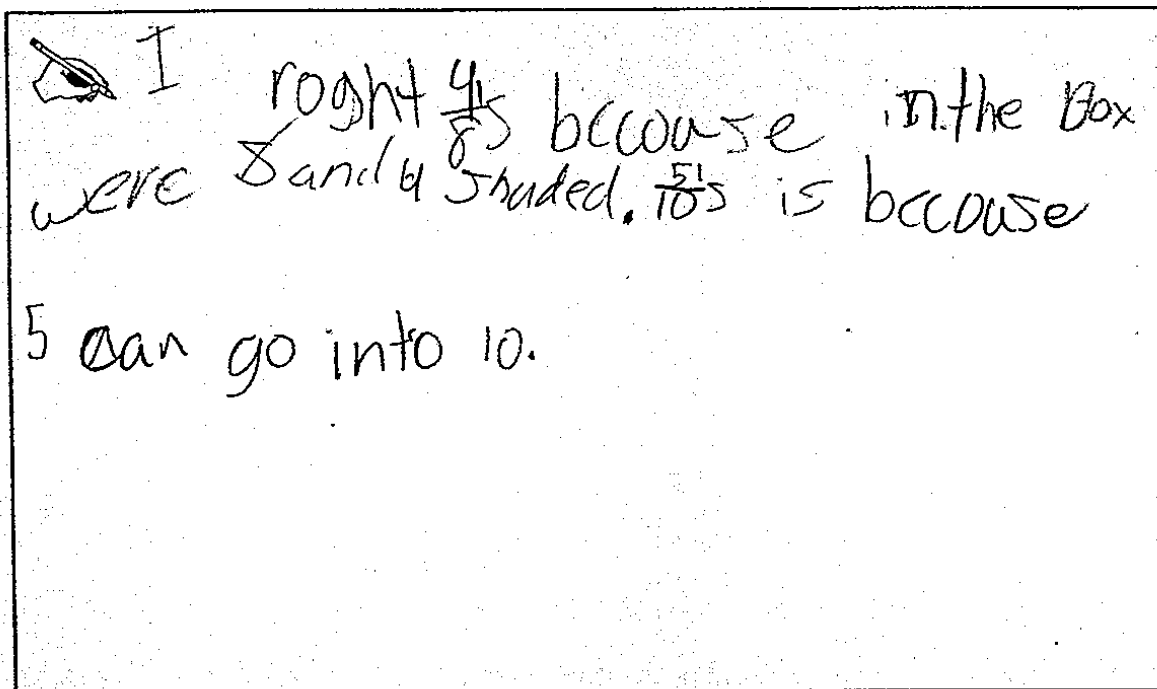 I roght 4/8's beccouse in the Box
were 8 and 4 shaded. 5/10's is beccouse
5 can go into 10.